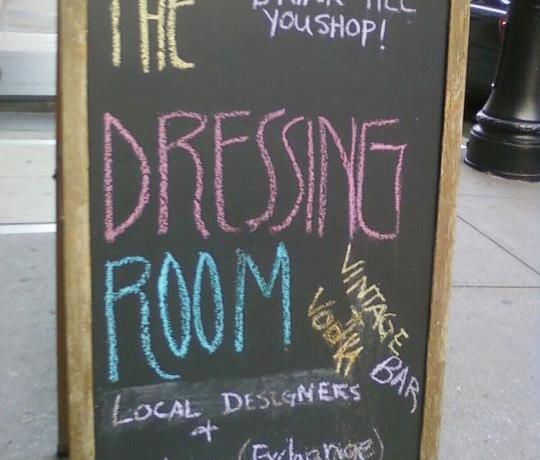 THE
TILL
YOU SHOP!
DRESSING
ROOM
VINTAGE
+
VODKA
BAR
LOCAL DESIGNERS
+
(Exchange)